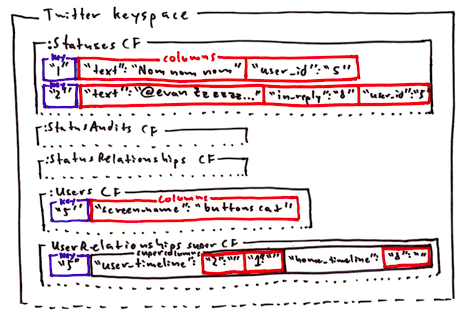 Twitter keyspace
:Statuses CF
key columns
"1" "text":"Nom nom nom" "user_id":"5"
"2" "text":"@evan Zzzzzz..." "in-reply":"8" "user_id":"5
:StatusAudits CF
:StatusRelationships CF
:Users CF
key columns
"5" "screen-name":"buttons cat"
UserRelationships super CF
key supercolumns
"5" "user-timeline": "2":"" "1":"" "home-timeline": "8":""